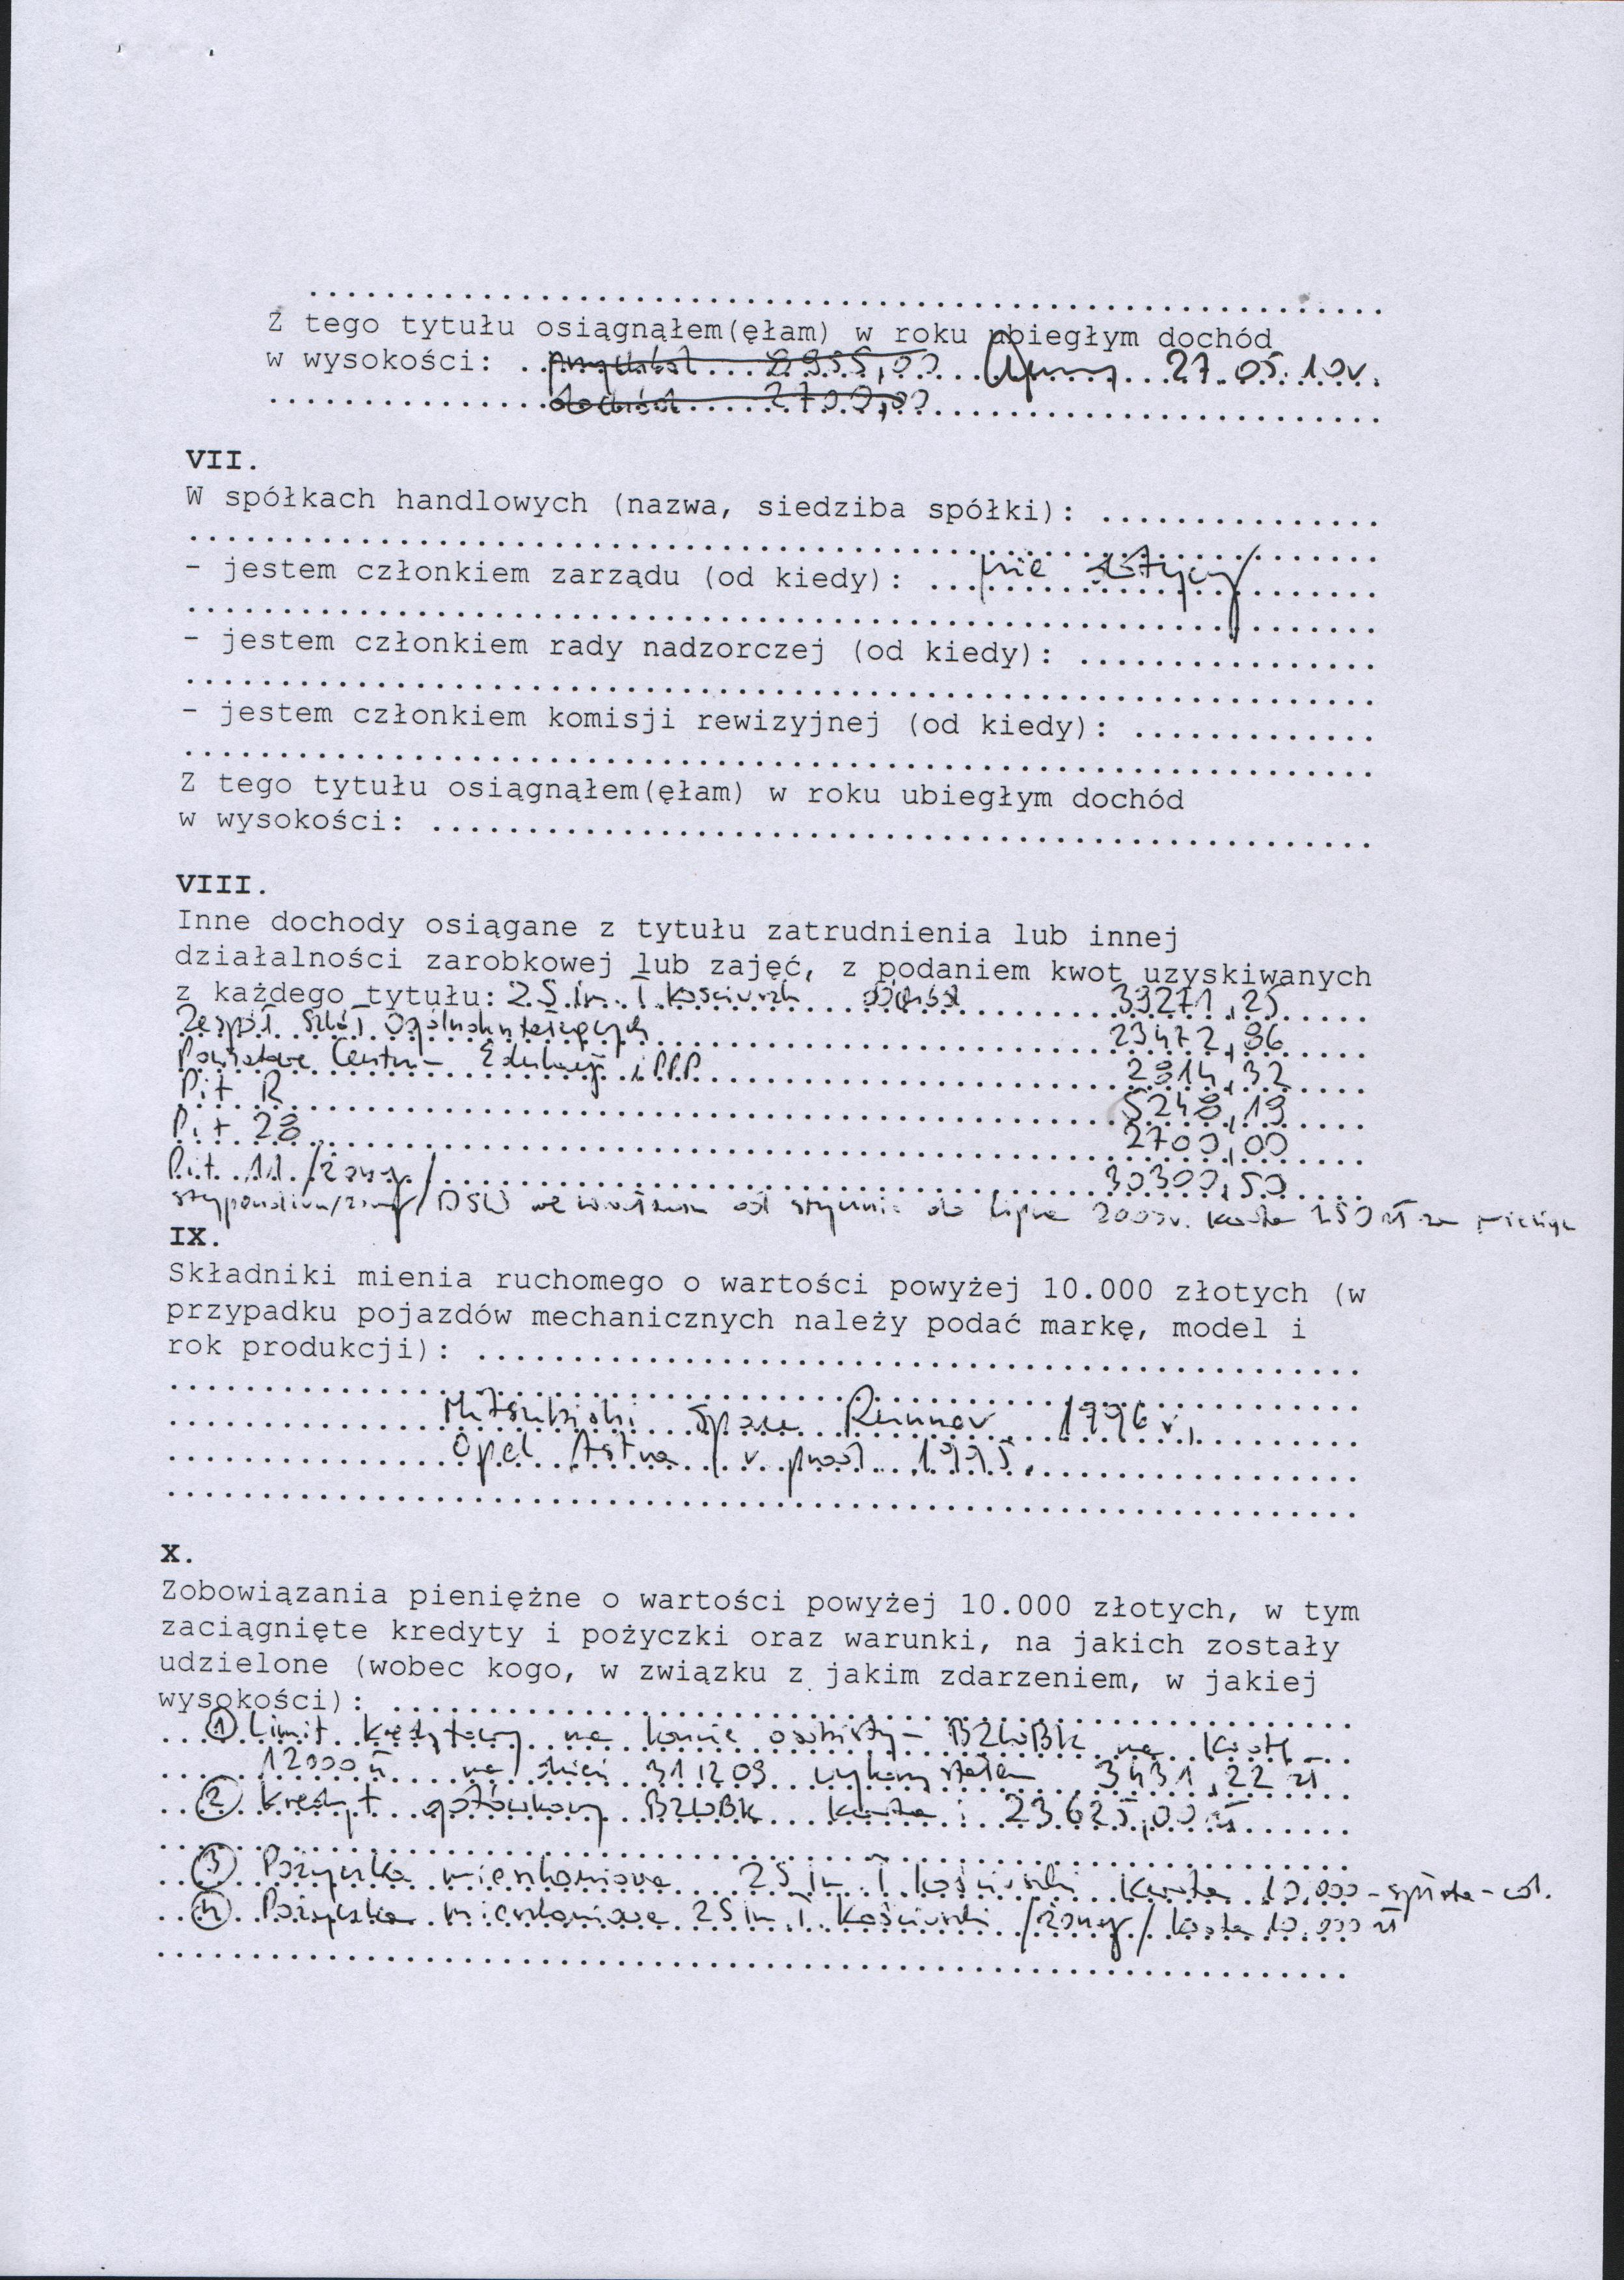 Z tego tytułu osiągnąłem(ęłam) w roku ubiegłym dochód
w wysokości: przychód 2955,00 27.05.10r.
dochód 2700,00
VII.
W spółkach handlowych (nazwa, siedziba spółki):
- jestem członkiem zarządu (od kiedy): nie dotyczy
- jestem członkiem rady nadzorczej (od kiedy):
- jestem członkiem komisji rewizyjnej (od kiedy):
Z tego tytułu osiągnąłem(ęłam) w roku ubiegłym dochód
w wysokości:
VIII.
Inne dochody osiągane z tytułu zatrudnienia lub innej
działalności zarobkowej lub zajęć, z podaniem kwot uzyskiwanych
z każdego tytułu: ZS im. T. Kościuszki dochód 33271,25
Zespół Szkół Ogólnokształcących 23472,96
Powiatowe Centrum Edukacji i PPP 2914,32
Pit R 5248,19
Pit 28 2700,00
Pit 11 /żony/ 30300,50
stypendium/żony/ DSW we Wrocławiu od stycznia do lipca 2009r. kwota 150 zł za miesiąc
IX.
Składniki mienia ruchomego o wartości powyżej 10.000 złotych (w
przypadku pojazdów mechanicznych należy podać markę, model i
rok produkcji):
Mitsubishi Space Runner, 1996 r,
Opel Astra, r. prod. 1995.
X.
Zobowiązania pieniężne o wartości powyżej 10.000 złotych, w tym
zaciągnięte kredyty i pożyczki oraz warunki, na jakich zostały
udzielone (wobec kogo, w związku z jakim zdarzeniem, w jakiej
wysokości):
① Limit kredytowy na koncie osobistym BZWBK na kwotę
12000 zł na dzień 31 12 09 wykorzystałem 3431,22 zł
② Kredyt gotówkowy BZWBK kwota: 23.625,00 zł
③ Pożyczka mieszkaniowa ZS im. T. Kościuszki Kwota 10.000 - spłata
④ Pożyczka mieszkaniowa ZS im. T. Kościuszki /żony/ kwota 10.000 zł